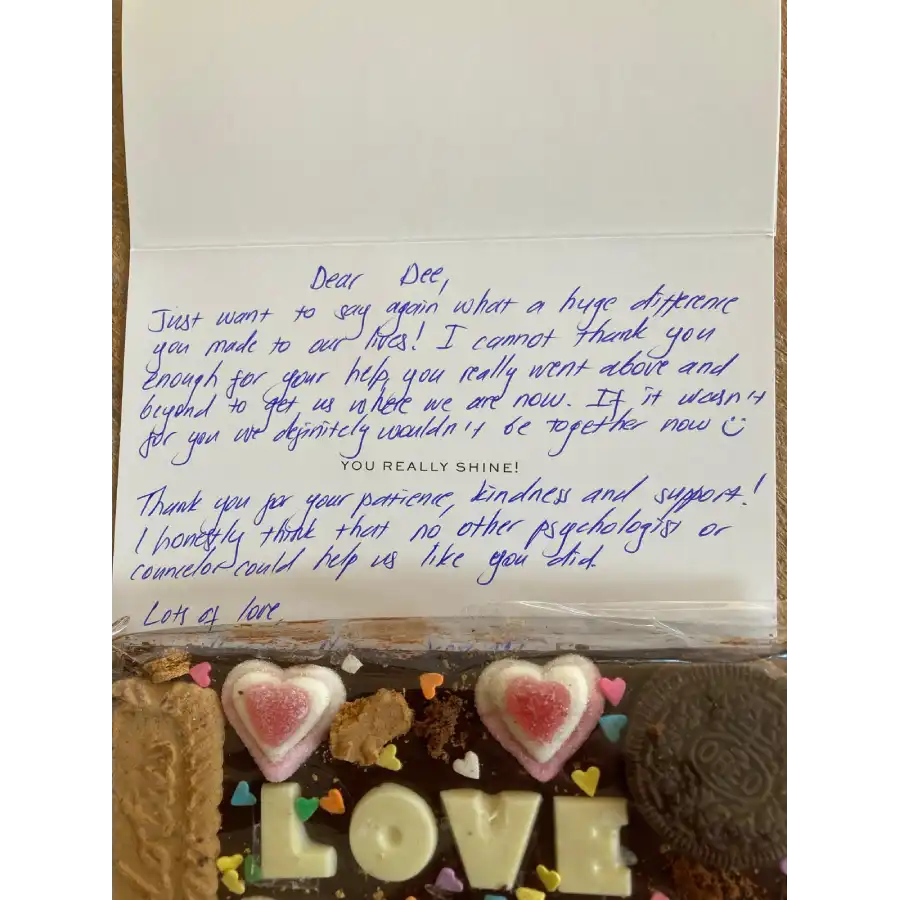 Dear Dee,
Just want to say again what a huge difference
you made to our lives! I cannot thank you
enough for your help, you really went above and
beyond to get us where we are now. If it wasn't
for you we definitely wouldn't be together now
YOU REALLY SHINE!
Thank you for your patience, kindness and support!
I honestly think that no other psychologist or
councelor could help us like you did.
Lots of love,
LOVE